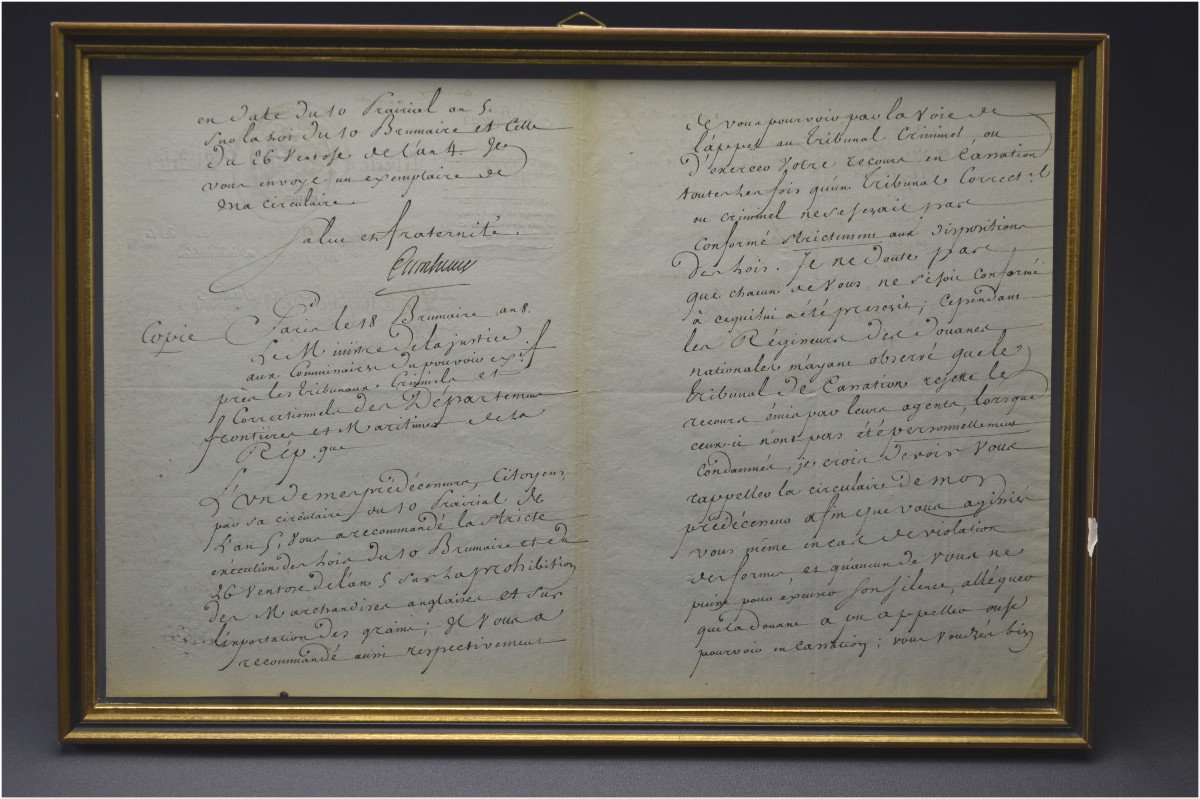 en date du 10 Prairial an 5.
Sur la Loi du 10 Brumaire et Celle
du 26 Ventose de l'an 4. Je
vous envoye un exemplaire de
ma circulaire.
Salut et fraternité.
Copie
Paris le 18 Brumaire an 8.
Le Ministre de la justice
aux Commissaires du pouvoir ex.if
près les tribunaux Criminels et
Correctionnels des Départemens
frontières et Maritimes de la
Rép.que
L'un de mes prédécesseurs, Citoyens,
par sa circulaire du 10 Prairial de
l'an 5, vous a recommandé la stricte
exécution des Lois du 10 Brumaire et du
26 Ventose de l'an 5 sur la prohibition
des Marchandises anglaises et sur
l'exportation des grains; il vous a
recommandé aussi respectivement
de vous pourvoir par la voie de
l'appel au tribunal Criminel ou
d'exercer votre recours en Cassation
toutes les fois qu'un tribunal Correct.el
ou criminel ne se serait pas
conformé strictement aux dispositions
des Lois. Je ne doute pas
que chacun de vous ne se soit conformé
à ce qui lui a été prescrit; Cependant
les Régisseurs des douanes
nationales m'ayant observé que le
tribunal de Cassation rejette le
recours émis par leurs agents, lorsque
ceux-ci n'ont pas été personnellement
Condamnés, je crois devoir vous
rappeller la circulaire de mon
prédécesseur afin que vous agissiez
vous même en cas de violation
des formes, et qu'aucun de vous ne
puisse pour excuser son silence, alléguer
que la douane a pu appeller ou se
pourvoir en Cassation; vous voudrez bien